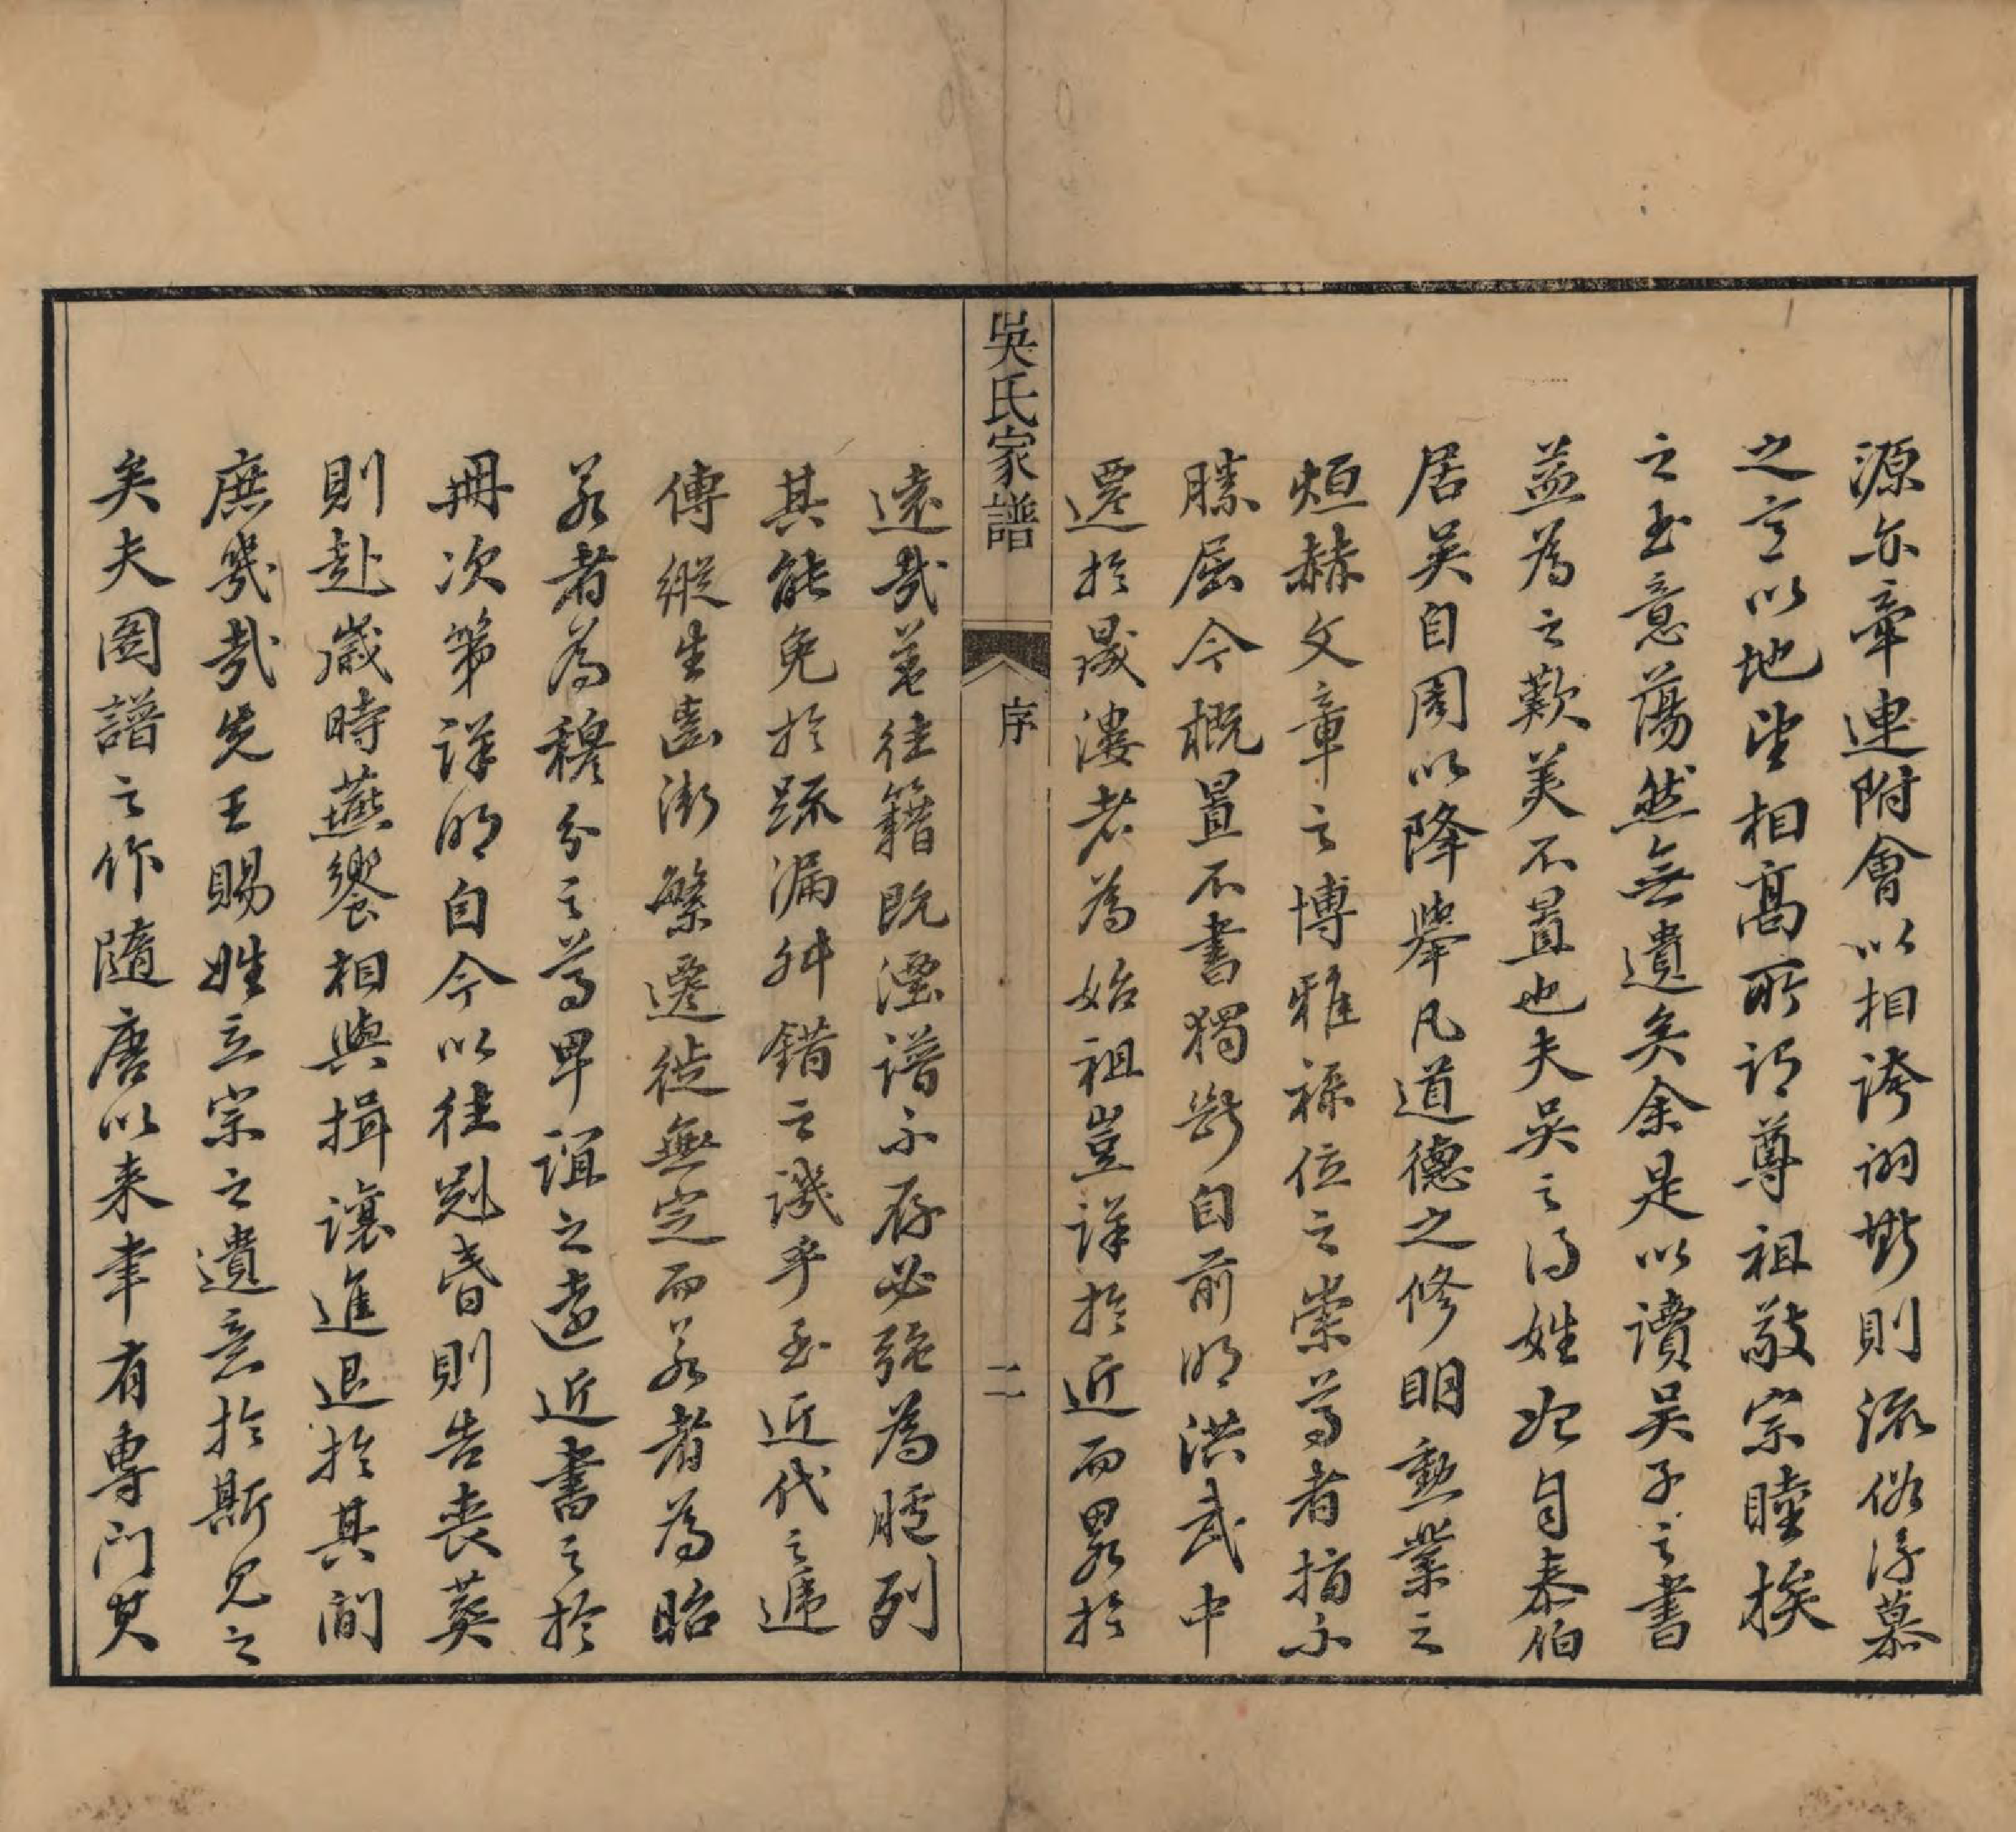 源亦牽連附會以相誇詡斯則流俗浮慕
之言以地望相高所謂尊祖敬宗睦族
之至意蕩然無遺矣余是以讀吳子之書
益為之歎美不置也夫吳之得姓始自泰伯
居吳自周以降舉凡道德之修明勳業之
烜赫文章之博雅祿位之崇高者指不
勝屈今概置不書獨斷自前明洪武中
遷於晟漊者為始祖豈詳於近而畧於
吳氏家譜
序
二
遠哉蓋往籍既湮譜不存必強為臚列
其能免於疏漏舛錯之譏乎至近代之遞
傳緜生齒漸繁遷徙無定而若者為昭
若者為穆分之尊卑誼之遠近書之於
冊次第詳明自今以往冠昏則告喪葬
則赴歲時燕饗相與揖讓進退於其間
庶幾哉先王賜姓立宗之遺意於斯見之
矣夫圖譜之作隨唐以来聿有專門其